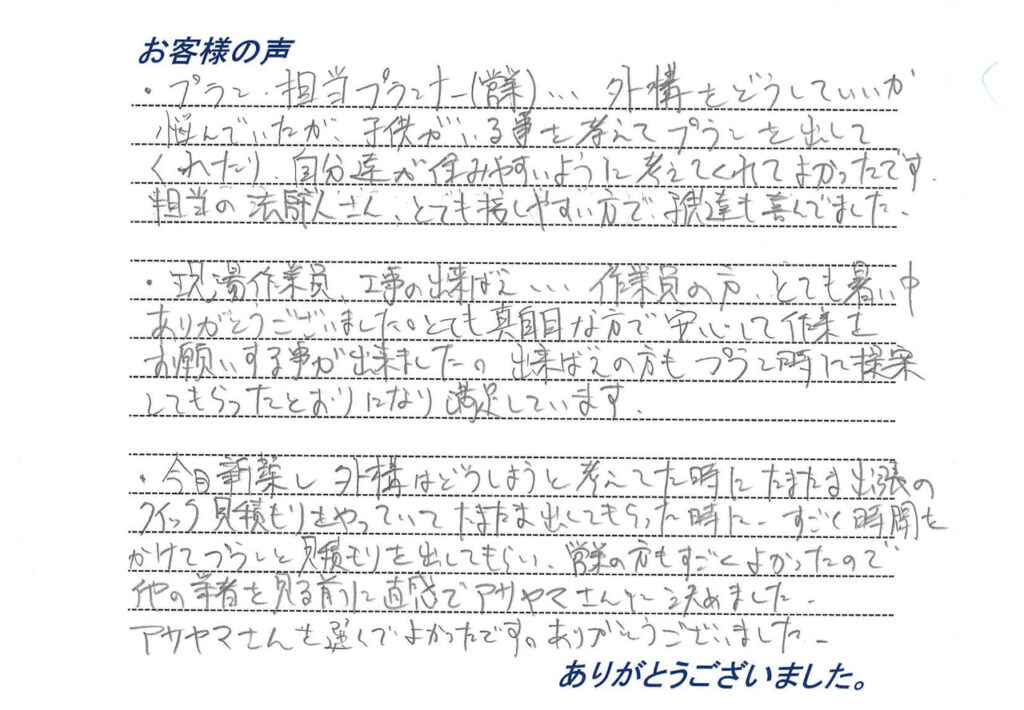 お客様の声
・プラン・担当プランナー(営業)… 外構をどうしていいか
悩んでいたが、子供がいる事を考えてプランを出して
くれたり、自分達が住みやすいように考えてくれてよかったです。
担当の法職人さん、とても接しやすい方で、子供達も喜んでました。
・現場作業員、工事の出来ばえ… 作業員の方、とても暑い中
ありがとうございました。とても真面目な方で安心して作業を
お願いする事が出来ました。出来ばえの方もプラン時に提案
してもらったとおりになり満足しています。
・今回新築し外構はどうしようと考えてた時にたまたま出張の
クイック見積もりをやっていてたまたま出してもらった時に、すごく時間を
かけてプランと見積もりを出してもらい、営業の方もすごくよかったので
他の業者を見る前に直感でアサヤマさんに決めました。
アサヤマさんを選んでよかったです。ありがとうございました。
ありがとうございました。